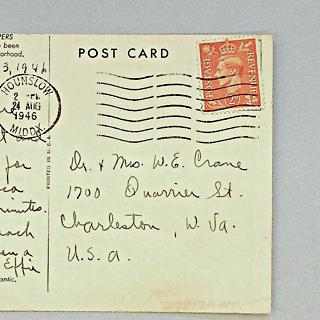 PERS
been
orhood.
POST CARD
3, 1946
HOUNSLOW
24 AUG
1946
MIDDX.
POSTAGE
REVENUE
PRINTED IN U.S.A.
for
minutes.
Effie
antic.
Dr. & Mrs. W. E. Crane
1700 Quarrier St.
Charleston, W. Va.
U.S.A.